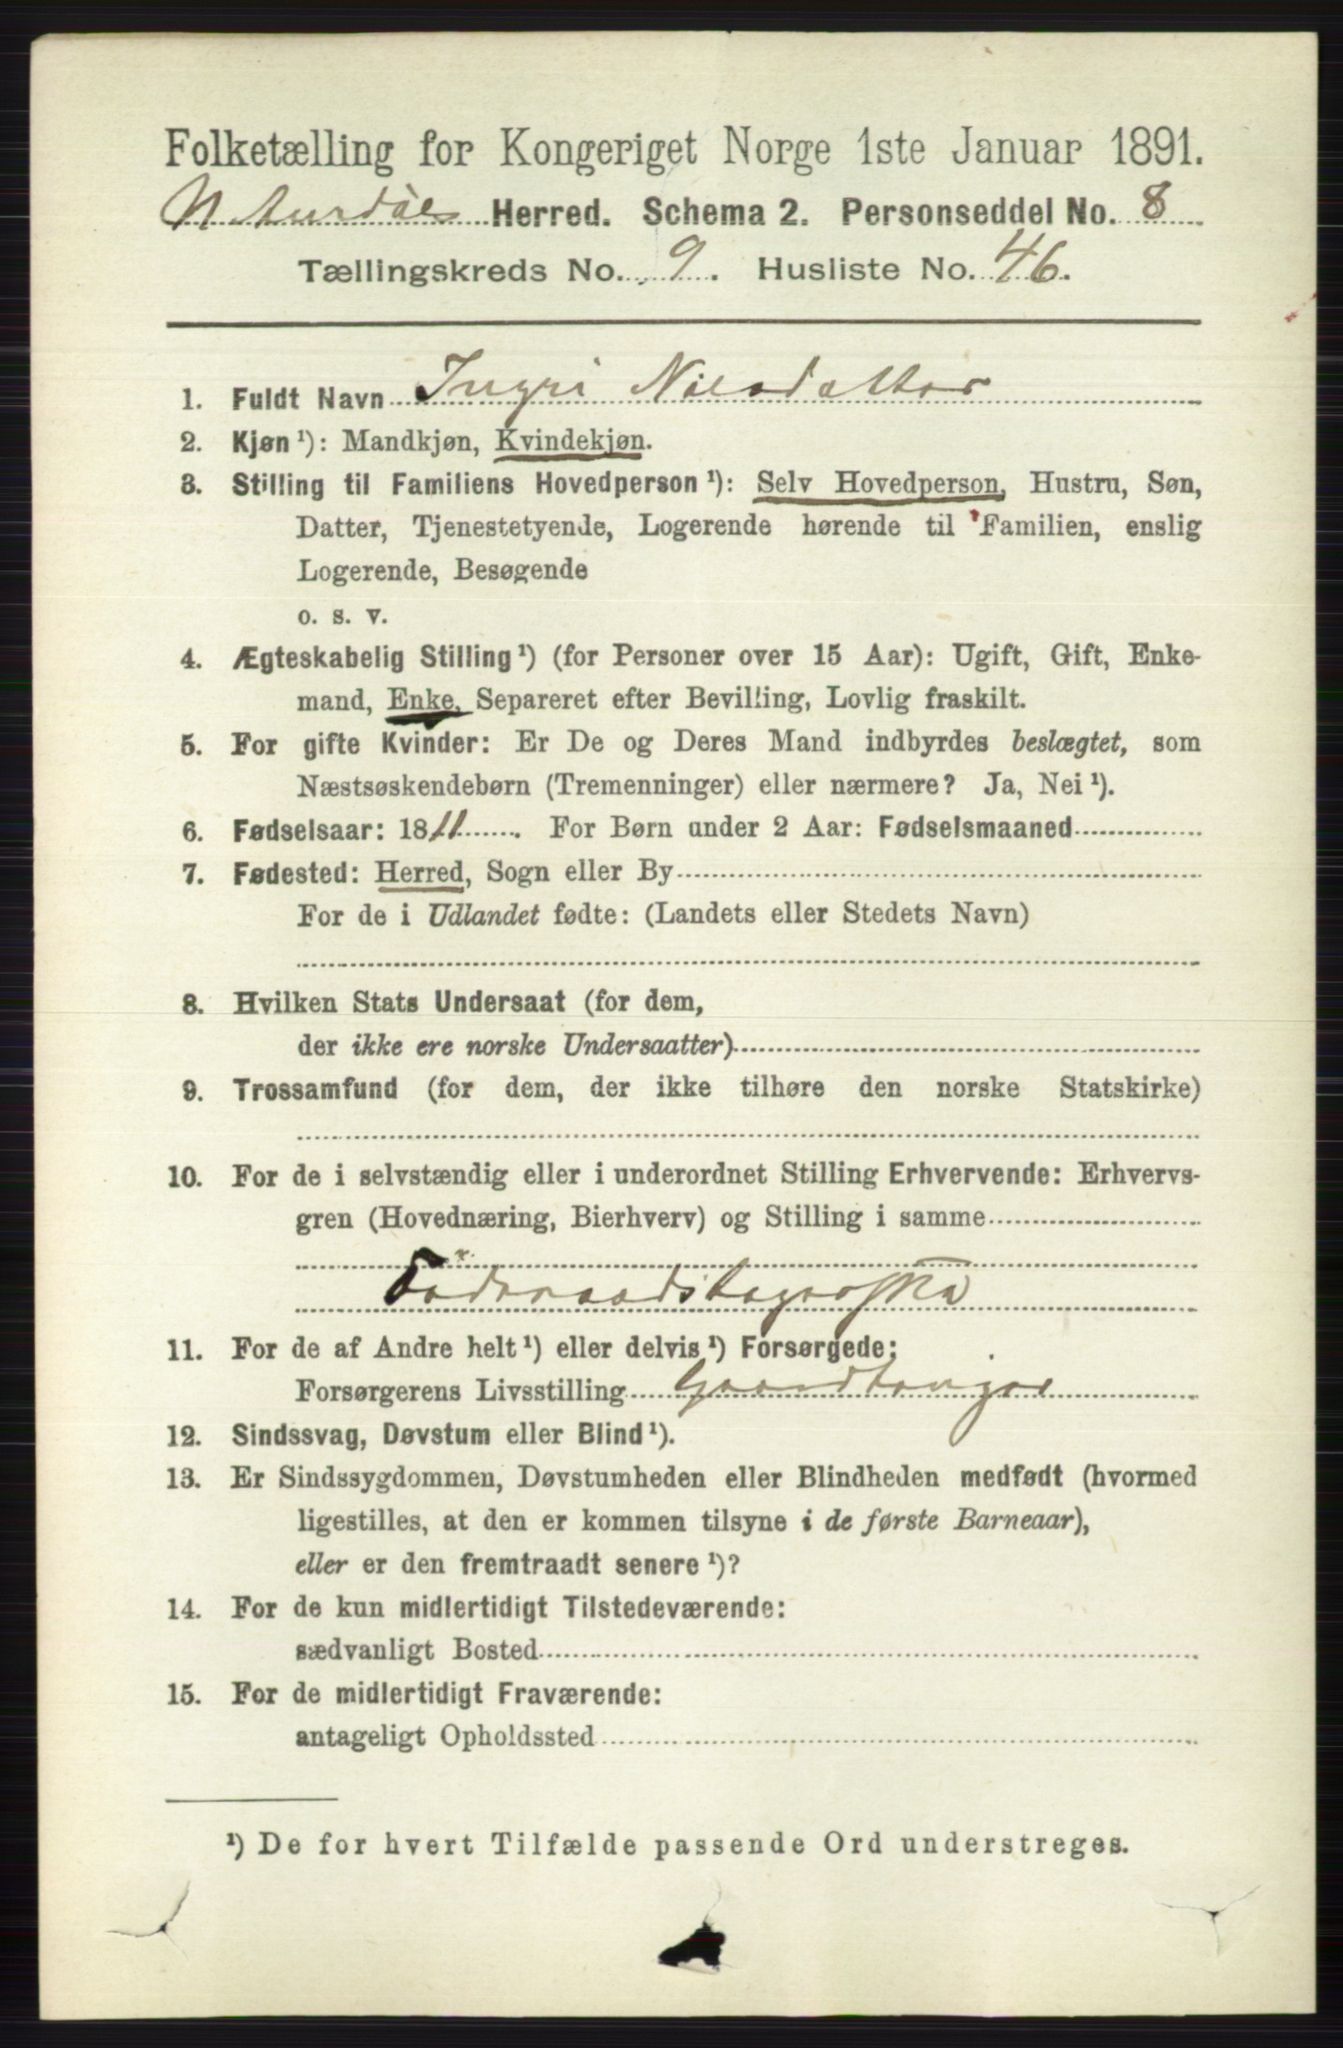 Folketælling for Kongeriget Norge 1ste Januar 1891.
N Aurdal Herred. Schema 2. Personseddel No. 8
Tællingskreds No. 9. Husliste No. 46.
1. Fuldt Navn Ingri Nilsdatter
2. Kjøn ¹): Mandkjøn, Kvindekjøn.
3. Stilling til Familiens Hovedperson ¹): Selv Hovedperson, Hustru, Søn,
Datter, Tjenestetyende, Logerende hørende til Familien, enslig
Logerende, Besøgende
o. s. v.
4. Ægteskabelig Stilling ¹) (for Personer over 15 Aar): Ugift, Gift, Enke-
mand, Enke, Separeret efter Bevilling, Lovlig fraskilt.
5. For gifte Kvinder: Er De og Deres Mand indbyrdes beslægtet, som
Næstsøskendebørn (Tremenninger) eller nærmere? Ja, Nei ¹).
6. Fødselsaar: 1811. For Børn under 2 Aar: Fødselsmaaned
7. Fødested: Herred, Sogn eller By
For de i Udlandet fødte: (Landets eller Stedets Navn)
8. Hvilken Stats Undersaat (for dem,
der ikke ere norske Undersaatter)
9. Trossamfund (for dem, der ikke tilhøre den norske Statskirke)
10. For de i selvstændig eller i underordnet Stilling Erhvervende: Erhvervs-
gren (Hovednæring, Bierhverv) og Stilling i samme
Föderaadstagerska
11. For de af Andre helt ¹) eller delvis ¹) Forsørgede:
Forsørgerens Livsstilling
12. Sindssvag, Døvstum eller Blind ¹).
13. Er Sindssygdommen, Døvstumheden eller Blindheden medfødt (hvormed
ligestilles, at den er kommen tilsyne i de første Barneaar),
eller er den fremtraadt senere ¹)?
14. For de kun midlertidigt Tilstedeværende:
sædvanligt Bosted
15. For de midlertidigt Fraværende:
antageligt Opholdssted
¹) De for hvert Tilfælde passende Ord understreges.